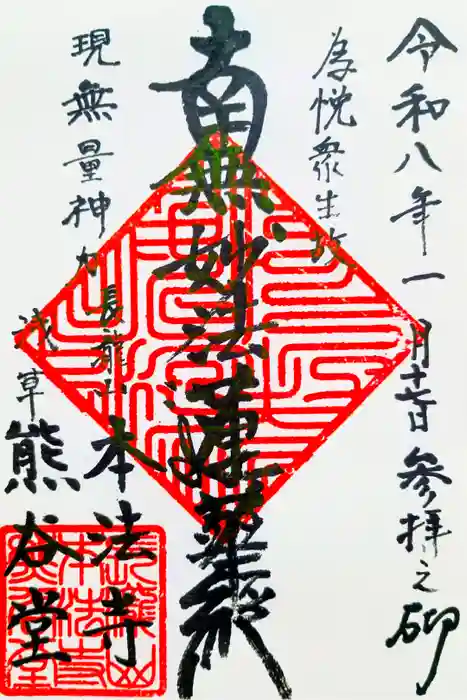 令和八年一月十七日参拝之砌
為悦衆生故
南無妙法蓮華経
現無量神力
長瀧山本法寺
浅草熊谷堂